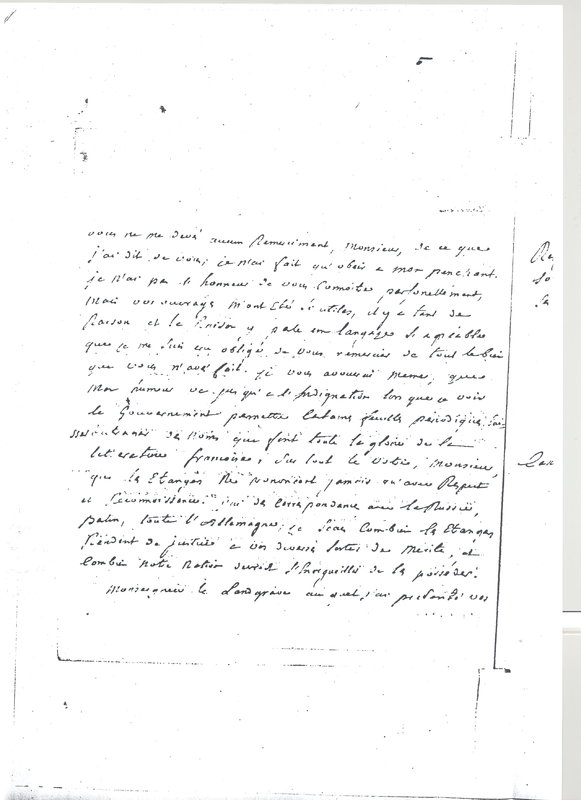 5
vous ne me devé aucun Remerciment, Monsieur, de ce que
j'ai dit de vous; je n'ai fait qu'obeir a mon penchant.
je n'ai pas l'honneur de vous Connoitre personellement,
Mais vos ouvrages m'ont Eté si utiles, il y a tant de
Raison et la Raison y parle un langage si agréable
que je me suis cru obligé de vous remercier de tout le bien
que vous m'avé fait. je vous avouerai meme, que
Mon humeur va jusqu'a l'Indignation lorsque je vois
le Gouvernement permettre Certaine feuille periodique,
des noms que font toute la gloire de la
litterature françoise, sur tout le votre, Monsieur,
que les Etrangers Ne nonciront jamais qu'avec Respect
et Reconnoissance. j'ai des Correspondance avec la Russie,
Berlin, toute l'Allemagne, je sais Combien les Etrangers
Rendent de justice a vos diverses sortes de Merite, et
Combien Notre Nation devroit s'Enorgueillir de les posséder.
Monseigneur le Landgrave auquel j'ai presenté vos